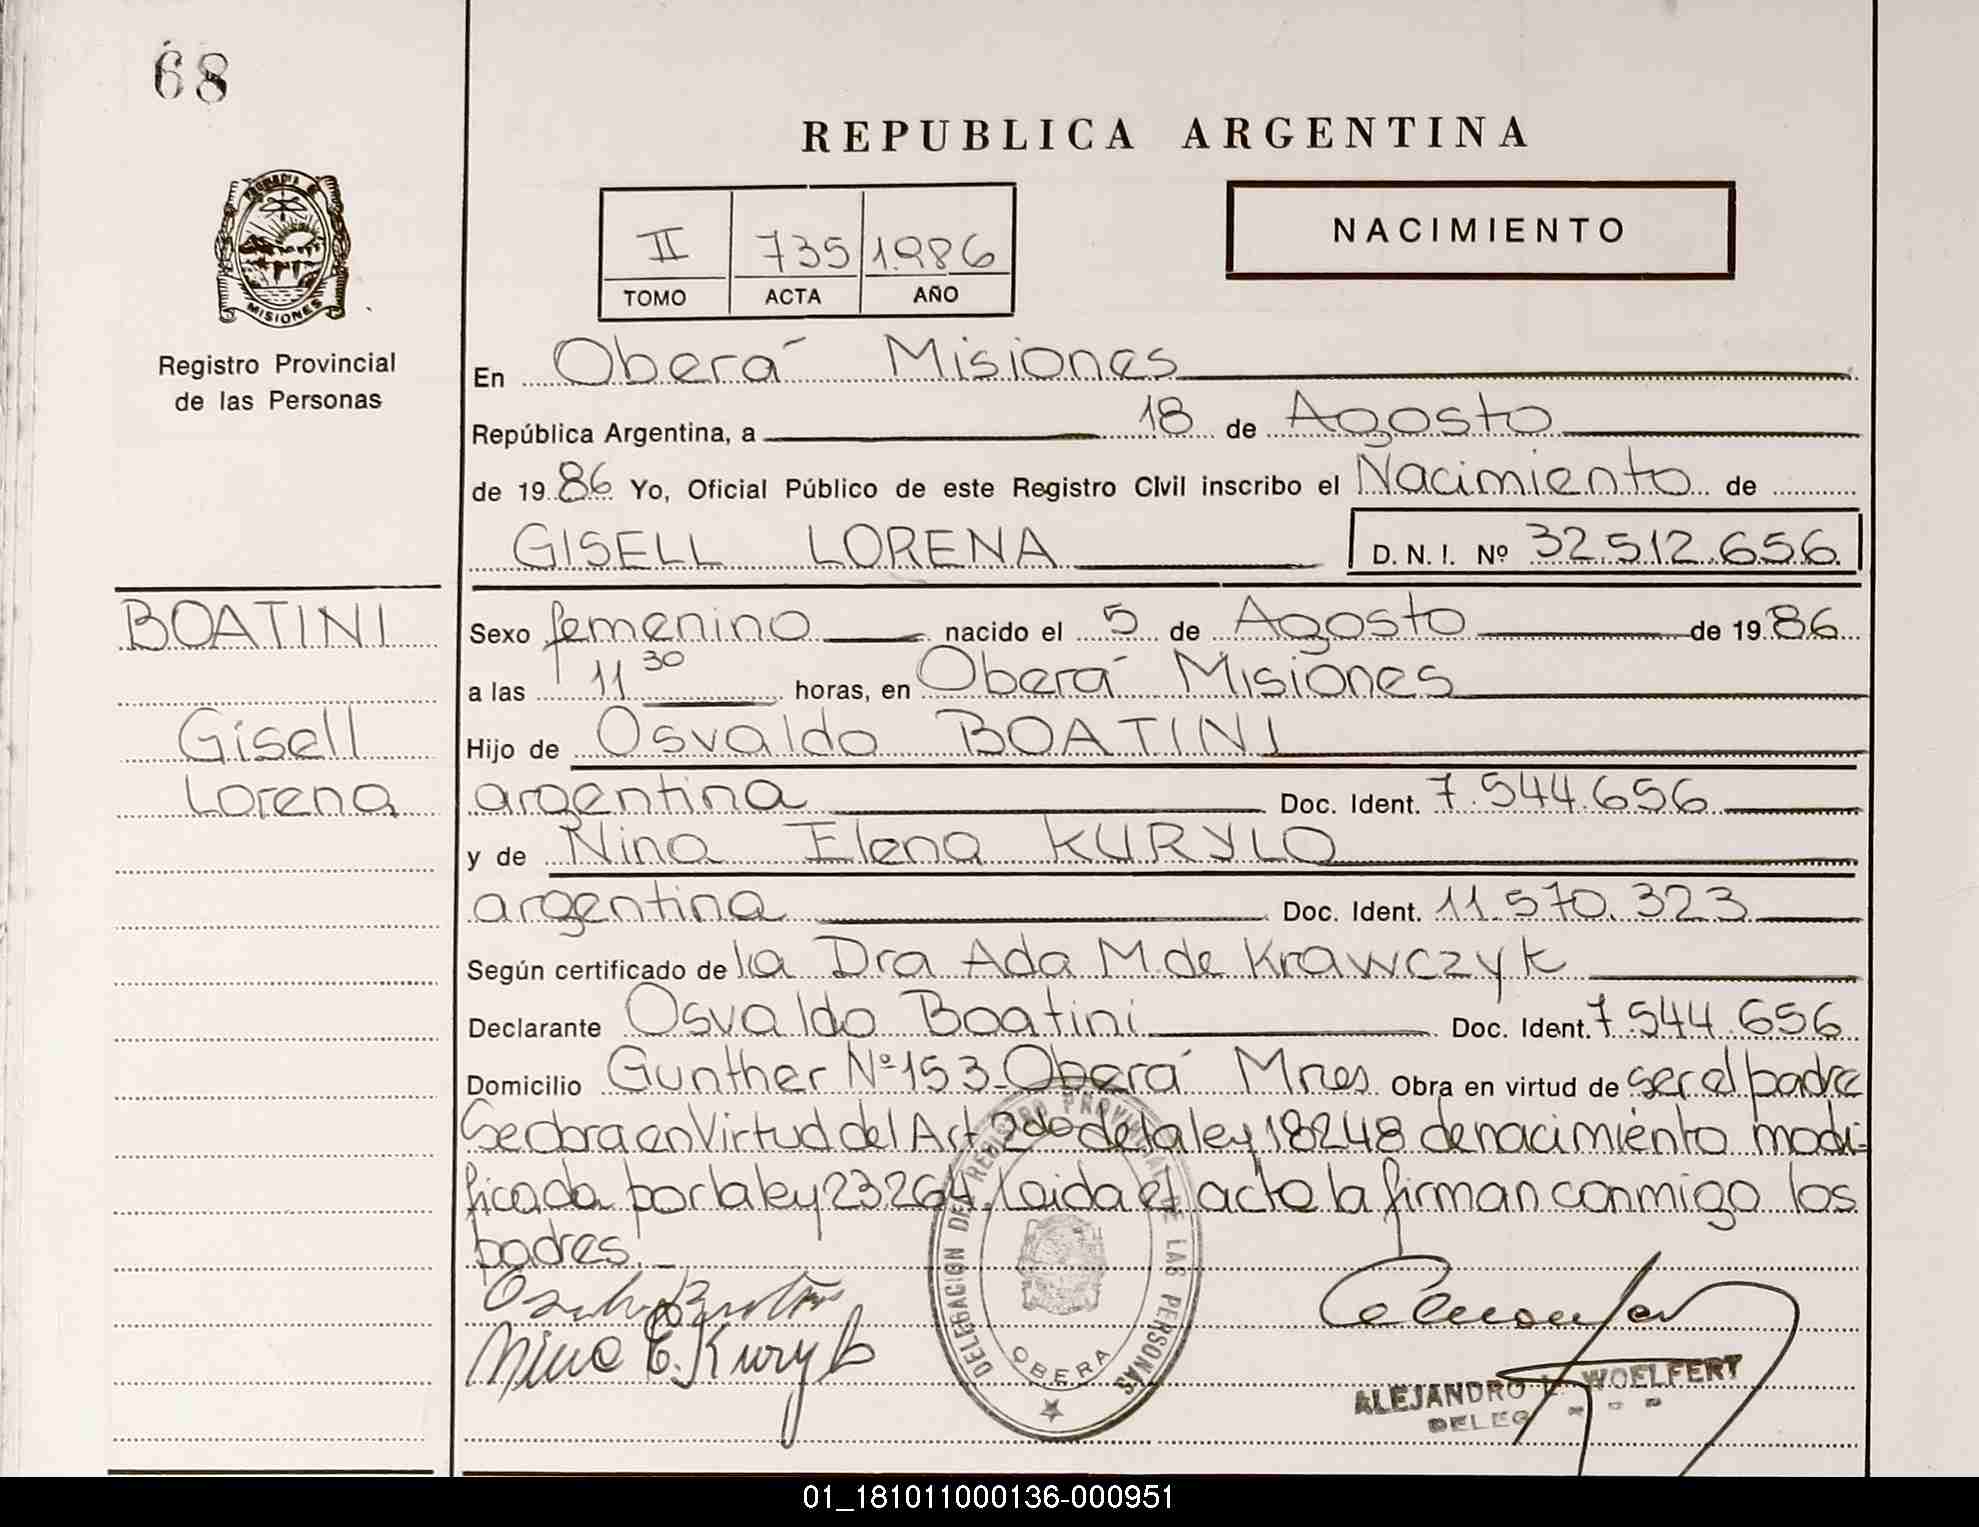 68
REPUBLICA ARGENTINA
PROVINCIA DE
MISIONES
Registro Provincial
de las Personas
II 735 1986
TOMO ACTA AÑO
NACIMIENTO
En Oberá Misiones
República Argentina, a 18 de Agosto
de 1986 Yo, Oficial Público de este Registro Civil inscribo el Nacimiento de
GISELL LORENA D. N. I. Nº 32.512.656
BOATINI
Gisell
Lorena
Sexo femenino nacido el 5 de Agosto de 1986
a las 11 30 horas, en Oberá Misiones
Hijo de Osvaldo BOATINI
argentina Doc. Ident. 7.544.656
y de Nina Elena KURYLO
argentina Doc. Ident. 11.570.323
Según certificado de la Dra Ada M. de Krawczyk
Declarante Osvaldo Boatini Doc. Ident. 7.544.656
Domicilio Gunther Nº 153 Oberá Mnes Obra en virtud de ser el padre
Se obra en Virtud del Art 2do de la ley 18248 de nacimiento modi-
ficada por la ley 23.264. Leida el acta la firman conmigo los
padres.
Nina E. Kurylo
DELEGACION DEL REGISTRO PROVINCIAL DE LAS PERSONAS
OBERA
ALEJANDRO L. WOELFERT
01_181011000136-000951